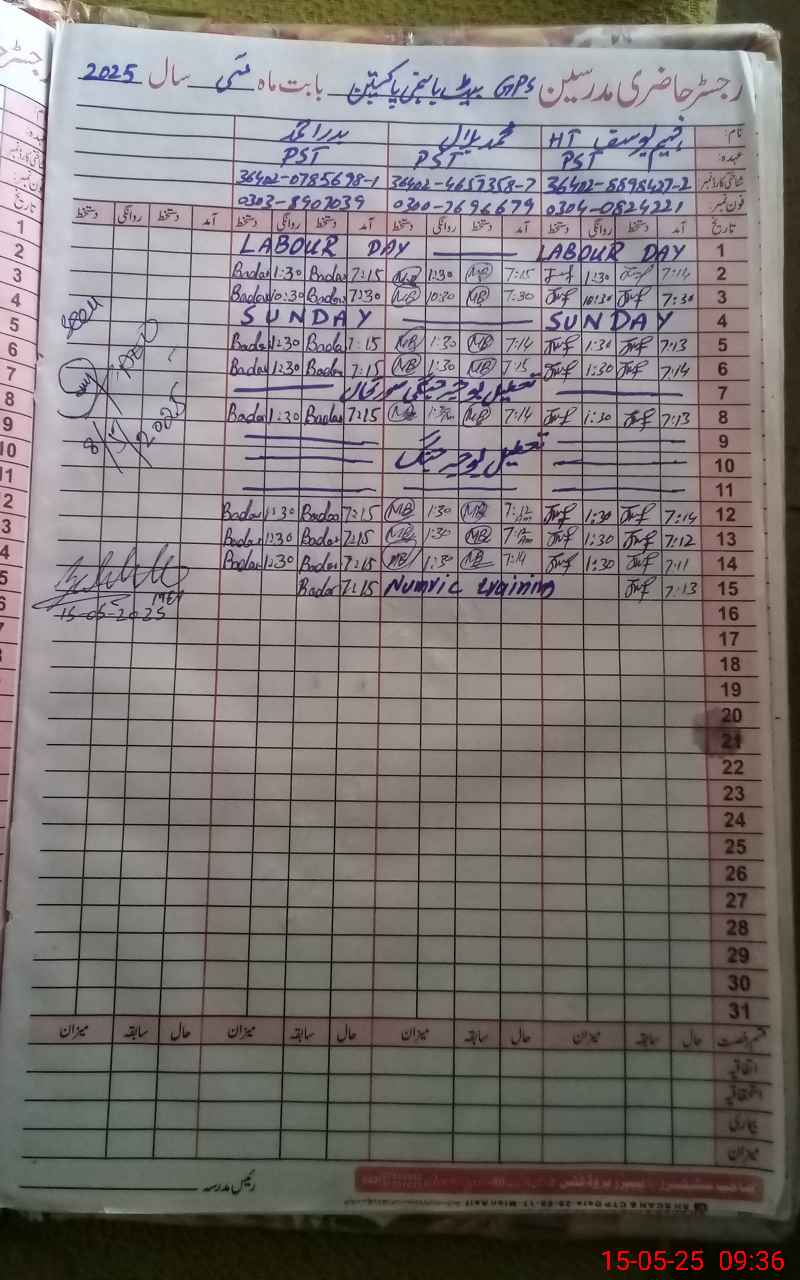 رجسٹر حاضری مدرسین GPS بابت ماہ مئی سال 2025
نام: HT محمد بلال بدر احمد
عہدہ: PST PST PST
شناختی کارڈ نمبر 36402-8898427-2 36402-4657358-7 36402-0785698-1
فون نمبر: 0304-0824221 0300-7696679 0303-8907039
تاریخ آمد دستخط روانگی دستخط آمد دستخط روانگی دستخط آمد دستخط روانگی دستخط آمد دستخط روانگی دستخط
1 LABOUR DAY LABOUR DAY
2 7:14 1:30 7:15 MB 1:30 MB 7:15 Badar 1:30 Badar
3 7:30 10:30 7:30 MB 10:30 MB 7:30 Badar 10:30 Badar
4 SUNDAY SUNDAY
5 7:13 1:30 7:14 MB 1:30 MB 7:15 Badar 1:30 Badar
6 7:14 1:30 7:15 MB 1:30 MB 7:15 Badar 1:30 Badar
7 تعطیل بوجہ جنگی صورتحال
8 7:13 1:30 7:14 MB MB 7:15 Badar 1:30 Badar
9
10 تعطیل بوجہ جنگ
11
12 7:14 1:30 7:12 MB 1:30 MB 7:15 Badar 1:30 Badar
13 7:12 1:30 7:12 MB 1:30 MB 7:15 Badar 1:30 Badar
14 7:11 1:30 7:14 MB 1:30 MB 7:15 Badar 1:30 Badar
15 7:13 Numric training 7:15 Badar
16
17
18
19
20
21
22
23
24
25
26
27
28
29
30
31
Seen
8/5/2025
15-05-2025
قسم رخصت حال سابقہ میزان حال سابقہ میزان حال سابقہ میزان حال سابقہ میزان
اتفاقیہ
استحقاقیہ
بیماری
میزان
رئیس مدرسہ
15-05-25 09:36